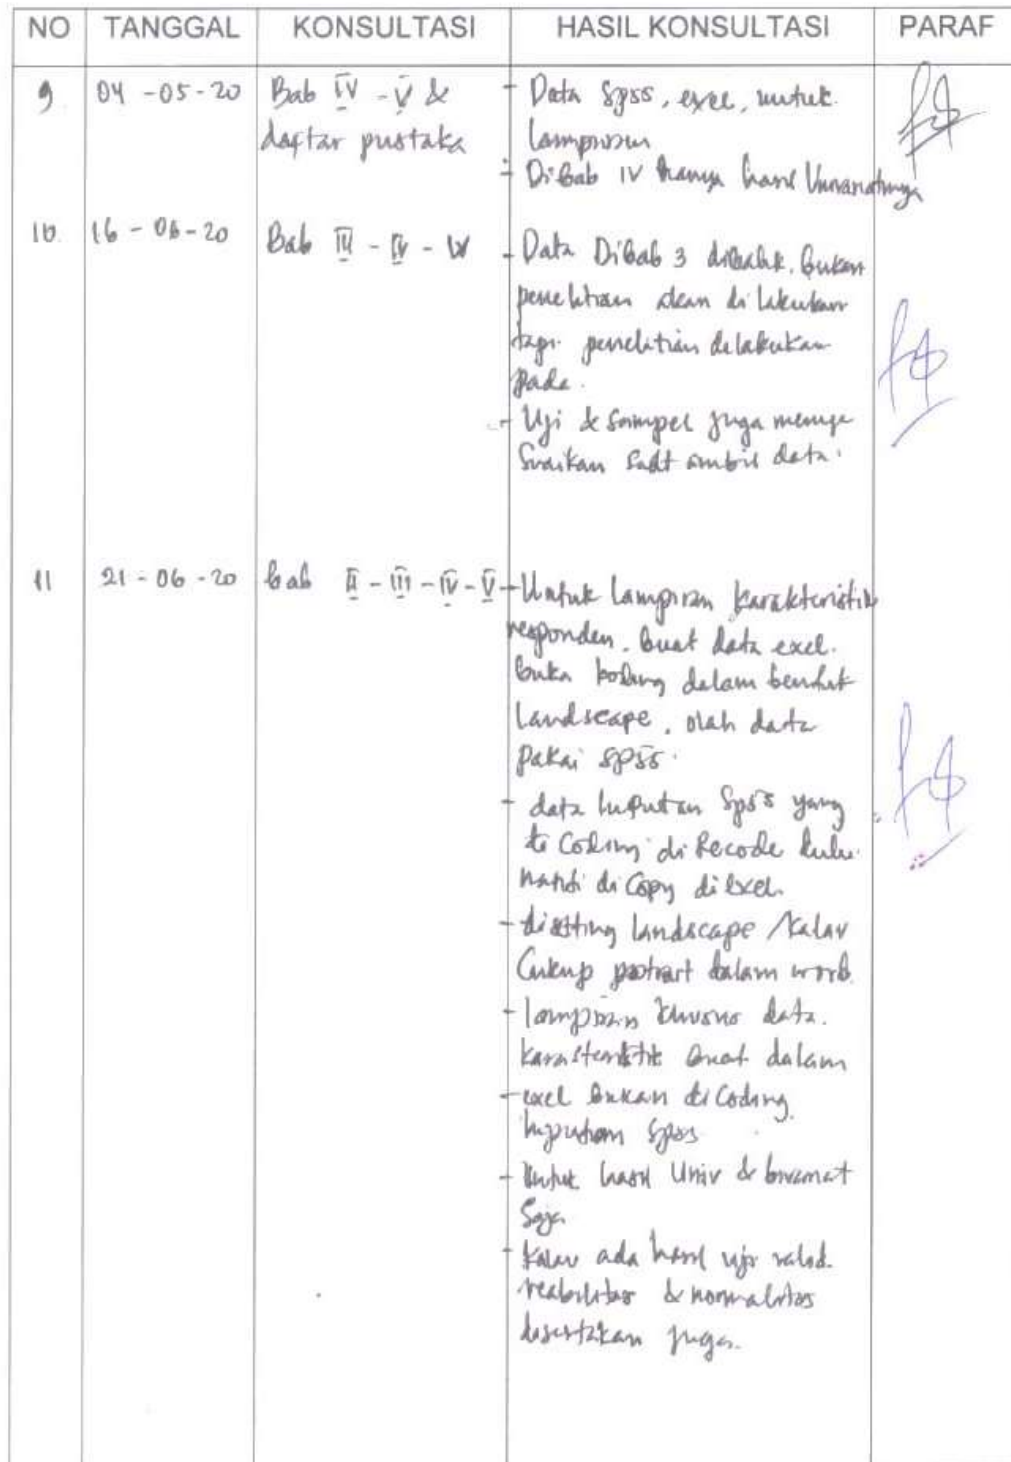 NO TANGGAL KONSULTASI HASIL KONSULTASI PARAF
9 04-05-20 Bab IV - V & - Data Spss, exel, untuk
daftar pustaka lampiran
- Dibab IV hanya hasil Univariatnya
10. 16-06-20 Bab III - IV - - Data Dibab 3 bukan
penelitian akan di lakukan
tapi penelitian dilakukan
pada.
- Uji & sampel juga menye
suaikan saat ambil data.
11 21-06-20 bab II - III - IV - V - Untuk lampiran karakteristik
responden. buat data exel.
buka kolom dalam bentuk
landscape, olah data
pakai spss.
- data inputan Spss yang
di Coding di Recode dulu.
nanti di Copy di exel.
- disetting landscape / kalau
Cukup potrait dalam word.
- lampiran khusus data.
karasteristik buat dalam
- exel bukan di Coding
inputan spss
- Untuk hasil Univ & bivariat
Saja
- kalau ada hasil uji valid.
reabilitas & normalitas
disertakan juga.